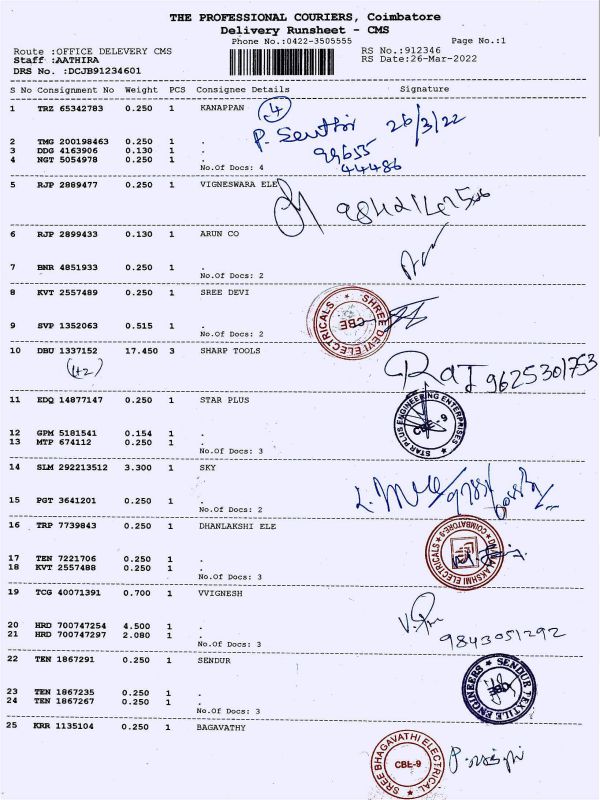 THE PROFESSIONAL COURIERS, Coimbatore
Delivery Runsheet - CMS
Phone No.:0422-3505555 Page No.:1
Route :OFFICE DELEVERY CMS RS No.:912346
Staff :AATHIRA RS Date:26-Mar-2022
DRS No. :DCJB91234601
S No Consignment No Weight PCS Consignee Details Signature
1 TRZ 65342783 0.250 1 KANAPPAN 4
P. Senthil 26/3/22
2 TMG 200198463 0.250 1 .
3 DDG 4163906 0.130 1 . 99655
4 NGT 5054978 0.250 1 . 44486
No.Of Docs: 4
5 RJP 2889477 0.250 1 VIGNESWARA ELE
6 RJP 2899433 0.130 1 ARUN CO
7 BNR 4851933 0.250 1 .
No.Of Docs: 2
8 KVT 2557489 0.250 1 SREE DEVI
SHREE DEVI ELECTRICALS CBE
9 SVP 1352063 0.515 1 .
No.Of Docs: 2
10 DBU 1337152 17.450 3 SHARP TOOLS
(H2) Raj 9625301753
11 EDQ 14877147 0.250 1 STAR PLUS
STAR PLUS ENGINEERING ENTERPRISES CBE-9
12 GPM 5181541 0.154 1 .
13 MTP 674112 0.250 1 .
No.Of Docs: 3
14 SLM 292213512 3.300 1 SKY
15 PGT 3641201 0.250 1 .
No.Of Docs: 2
16 TRP 7739843 0.250 1 DHANLAKSHI ELE
DHANALAKSHMI ELECTRICALS COIMBATORE-9
17 TEN 7221706 0.250 1 .
18 KVT 2557488 0.250 1 .
No.Of Docs: 3
19 TCG 40071391 0.700 1 VVIGNESH
20 HRD 700747254 4.500 1 .
21 HRD 700747297 2.080 1 . 9843051292
No.Of Docs: 3
22 TEN 1867291 0.250 1 SENDUR
SENDUR TEXTILE ENGINEERS
23 TEN 1867235 0.250 1 .
24 TEN 1867267 0.250 1 .
No.Of Docs: 3
25 KRR 1135104 0.250 1 BAGAVATHY
SREE BHAGAVATHI ELECTRICALS CBE-9